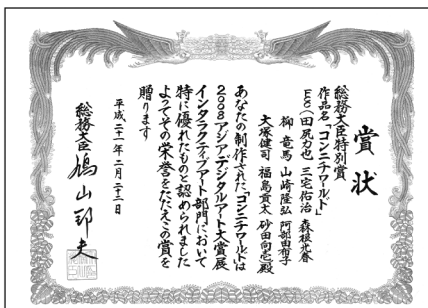 賞状
総務大臣特別賞
作品名「コンニチワールド」
EC(田尻力也 三宅佑治 森穂光春
柳竜馬 山崎隆弘 阿部由布子
大塚健司 福島貴太 砂田向壱殿
あなたの制作された「コンニチワールド」は
2008アジアデジタルアート大賞展
インタラクティブアート部門において
特に優れたものと認められました
よってその栄誉をたたえこの賞を
贈ります
平成二十一年二月二十三日
総務大臣 鳩山邦夫